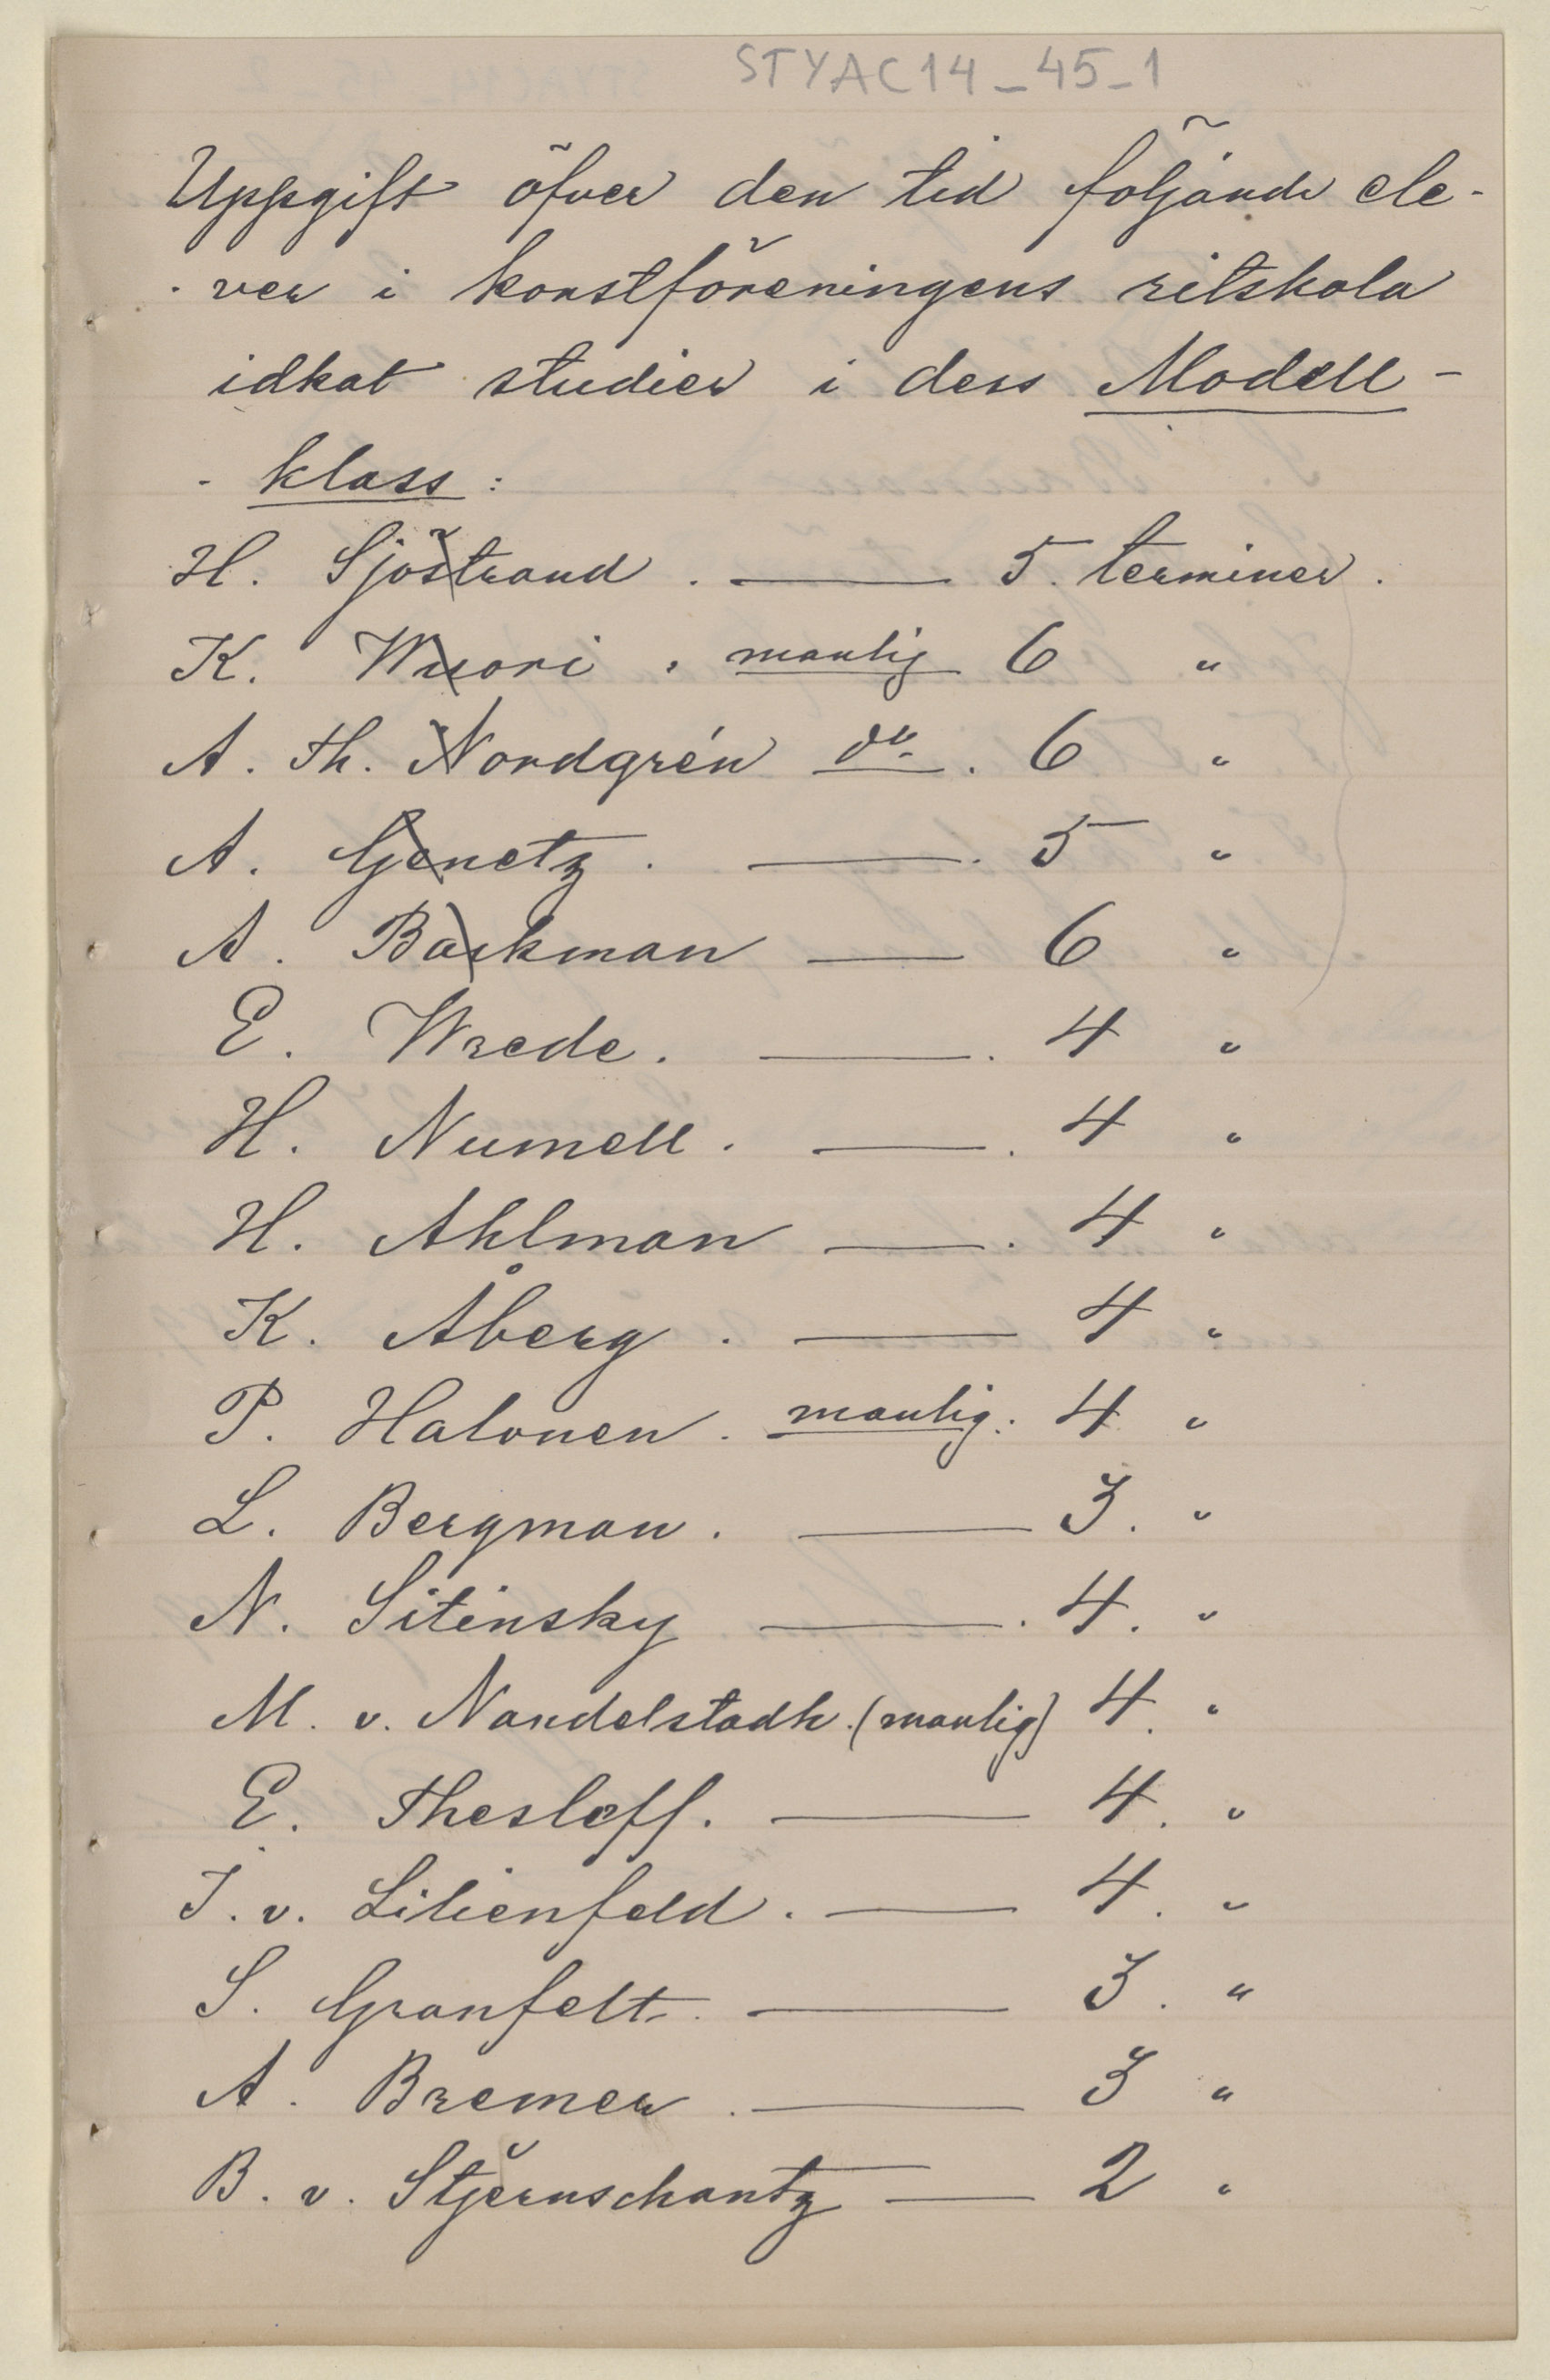 STYAC14_45_1
Uppgift öfver den tid följande ele-
-ver i konstföreningens ritskola
idkat studier i dess Modell-
- klass:
H. Sjöstrand. — 5. terminer.
K. Wuori. manlig 6 "
A. Th. Nordgrén do. 6 "
A. Genetz. — . 5 "
A. Backman — 6 "
E. Wrede. — . 4 "
H. Numell. — . 4 "
H. Ahlman — . 4 "
K. Åberg. — 4 "
P. Halonen. manlig: 4 "
L. Bergman. — 3. "
N. Sitinsky — . 4. "
M. v. Nandelstadh. (manlig) 4. "
E. Thesleff. — 4. "
I. v. Lilienfeld. — 4. "
S. Granfelt. — 3. "
A. Bremer. — 3 "
B. v. Stjernschantz — 2 "